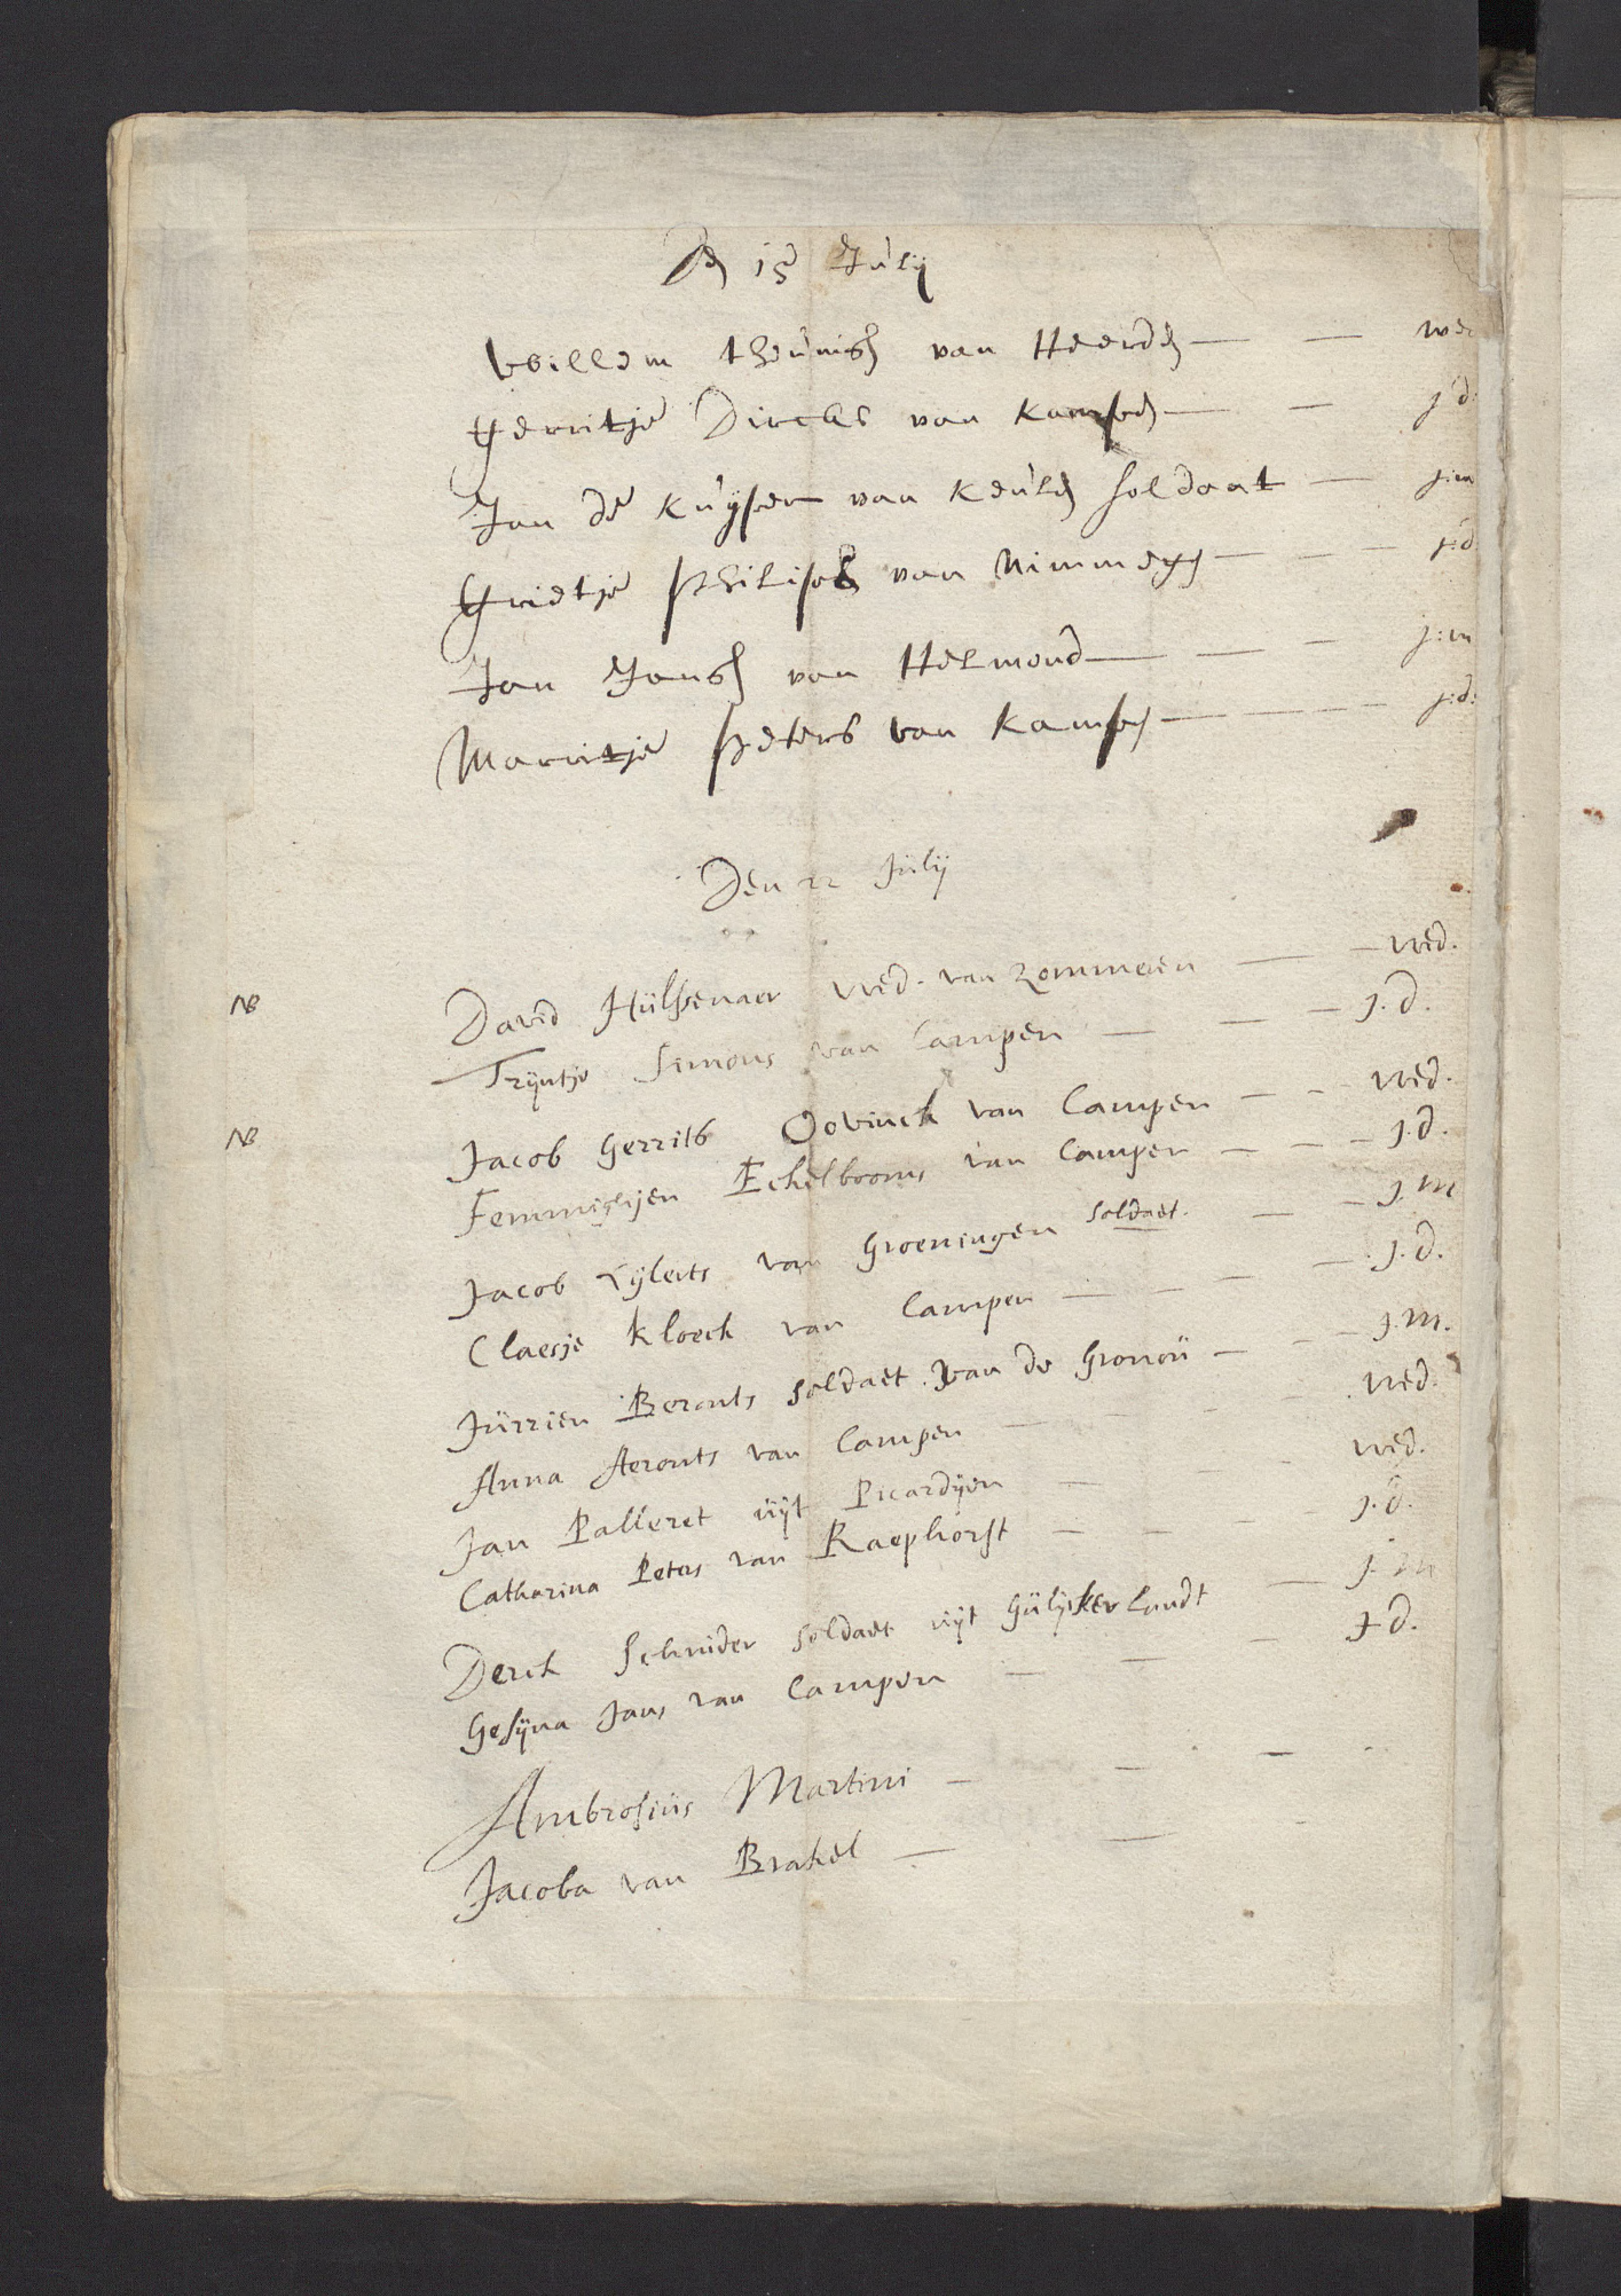 Den 15 Julij
Willem theunissen van Heerden — — wed
Gerritje Dircks van Kampen — — j:d:
Jan de Kuyper van Keulen soldaat — j:m
Grietje Philips van Nimmegen — — — j:d.
Jan Jansen van Helmond — — — j:m
Marritje Peters van Kampen — — — — j:d:
Den 22 Julij
NB David Hülssenaer wed. van Zommeren — — wed.
Trijntje Simons van Campen — — — j.d.
NB Jacob Gerrits Ovinck van Campen — — wed.
Femmigijen Eckelbooms van Campen — — — j.d.
Jacob Eijlerts van Groeningen soldaet. — — j.m
Claesje Kloeck van Campen — — — — j.d.
Jürrien Berents soldaet van de Gronoü — — — j.m.
Anna Aerents van Campen — — — — wed.
Jan Palleret üijt Picardijen — — wed.
Catharina Peters van Raephorst — — — — j.d.
Derck Schnider soldaet üijt Gülijckerlandt — j.m
Gesijna Jans van Campen — — — j d.
Ambrosiüs Martini — — — -
Jacoba van Brakel — — -